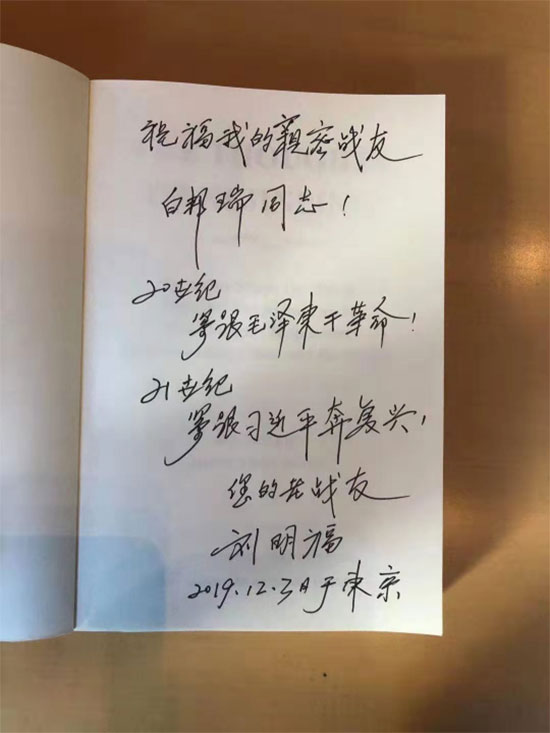 祝福我的親密战友
白邦瑞同志！
20世纪
紧跟毛泽东干革命！
21世纪
紧跟习近平奔复兴！
您的老战友
刘明福
2019.12.3日于東京